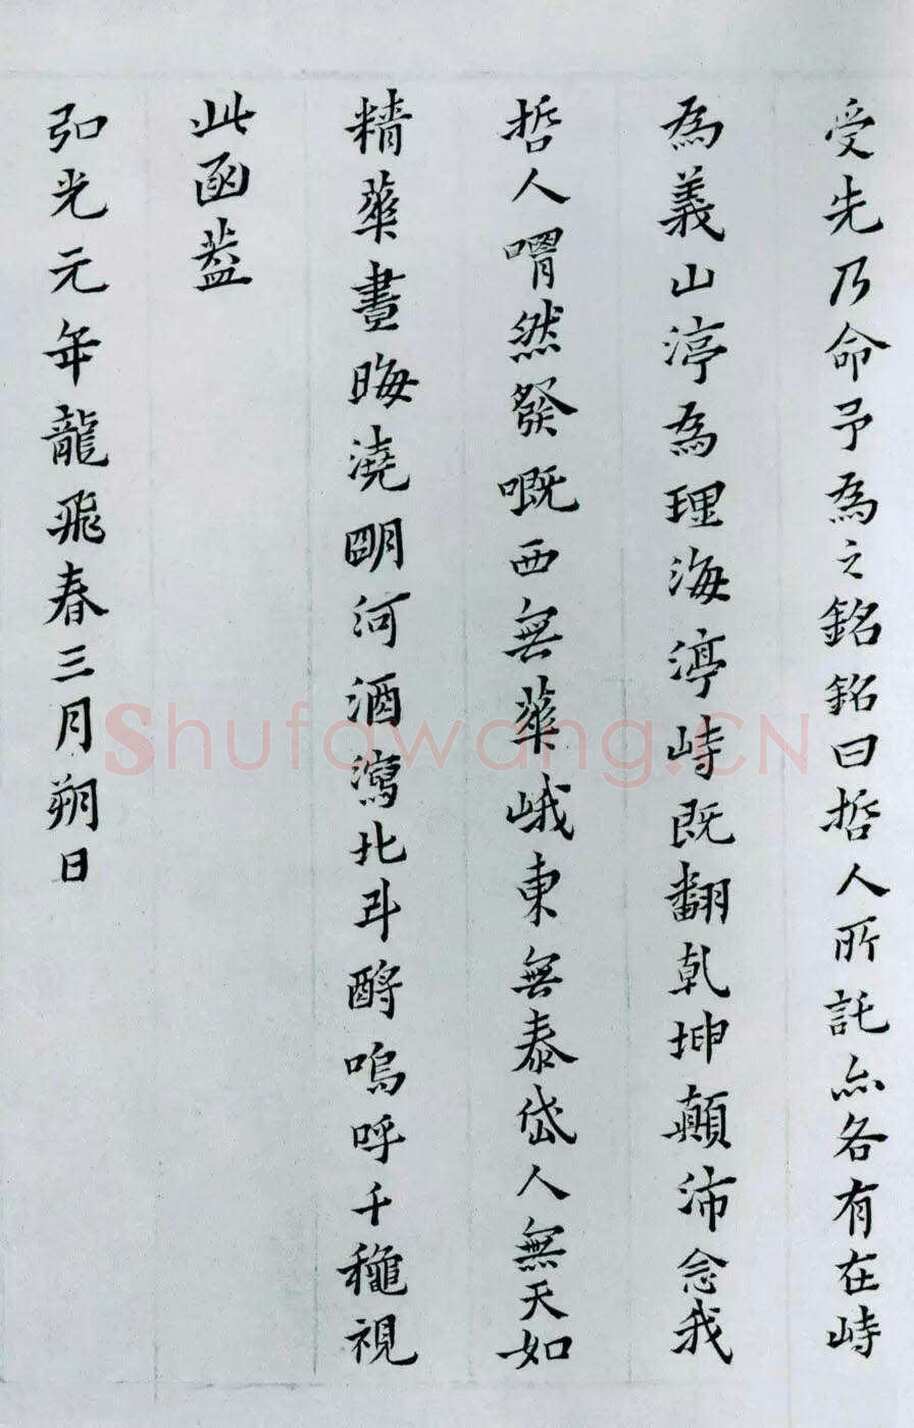 受先乃命予為之銘銘曰哲人所託亦各有在峙
為義山渟為理海渟峙既翻乾坤顛沛念我
哲人喟然發嘅西無華峨東無泰岱人無天如
精華晝晦澆明河酒瀉北斗酹嗚呼千龝視
此函蓋
弘光元年龍飛春三月朔日
Shufawang.CN